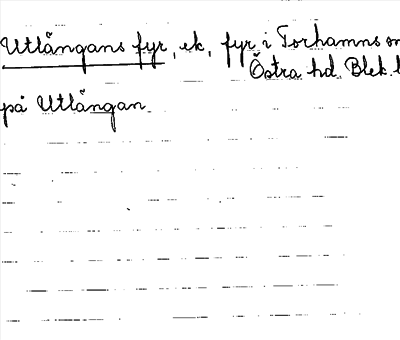 Utlångans fyr, ek, fyr i Torhamns sn
Östra hd. Blek. l
på Utlångan.